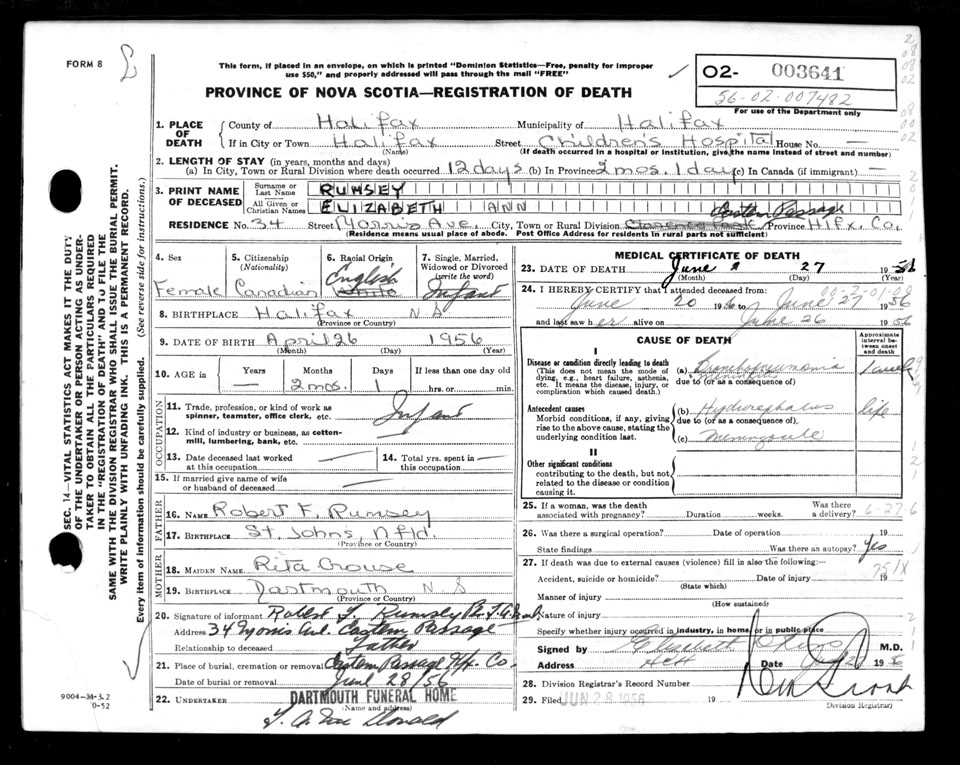 FORM 8
This form, if placed in an envelope, on which is printed "Dominion Statistics—Free, penalty for improper
use $50," and properly addressed will pass through the mail "FREE"
02- 003641
56-02-007482
For use of the Department only
PROVINCE OF NOVA SCOTIA—REGISTRATION OF DEATH
1. PLACE OF DEATH
County of Halifax Municipality of Halifax
If in City or Town Halifax Street Children's Hospital House No. —
(Name) (If death occurred in a hospital or institution, give the name instead of street and number)
2. LENGTH OF STAY (in years, months and days)
(a) In City, Town or Rural Division where death occurred 12 days (b) In Province 2 mos. 1 day (c) In Canada (if immigrant) —
3. PRINT NAME OF DECEASED
Surname or Last Name RUMSEY
All Given or Christian Names ELIZABETH ANN
Eastern Passage
RESIDENCE No. 34 Street Morris Ave. City, Town or Rural Division Province Hlfx. Co.
(Residence means usual place of abode. Post Office Address for residents in rural parts not sufficient)
4. Sex Female
5. Citizenship (Nationality) Canadian
6. Racial Origin English White
7. Single, Married, Widowed or Divorced (write the word) Infant
8. BIRTHPLACE Halifax N.S
(Province or Country)
9. DATE OF BIRTH April 26 1956
(Month) (Day) (Year)
10. AGE in Years — Months 2 mos. Days 1 If less than one day old hrs. or min.
OCCUPATION
11. Trade, profession, or kind of work as spinner, teamster, office clerk, etc. Infant
12. Kind of industry or business, as cotton-mill, lumbering, bank, etc.
13. Date deceased last worked at this occupation
14. Total yrs. spent in this occupation
15. If married give name of wife or husband of deceased
FATHER
16. NAME Robert F. Rumsey
17. BIRTHPLACE St. Johns, Nfld.
(Province or Country)
MOTHER
18. MAIDEN NAME Rita Crouse
19. BIRTHPLACE Dartmouth N.S
(Province or Country)
20. Signature of informant Robert F. Rumsey
Address 34 Morris Ave. Eastern Passage
Relationship to deceased Father
21. Place of burial, cremation or removal Eastern Passage Hfx. Co.
Date of burial or removal June 28/56
22. UNDERTAKER DARTMOUTH FUNERAL HOME
(Name and address)
MEDICAL CERTIFICATE OF DEATH
23. DATE OF DEATH June 27 1956
(Month) (Day) (Year)
24. I HEREBY CERTIFY that I attended deceased from:
June 20 1956 to June 27 1956
and last saw her alive on June 26 1956
CAUSE OF DEATH
Approximate interval between onset and death
I
Disease or condition directly leading to death
(This does not mean the mode of dying, e.g., heart failure, asthenia, etc. It means the disease, injury, or complication which caused death.)
(a) Bronchopneumonia 1 week
due to (or as a consequence of)
Antecedent causes
Morbid conditions, if any, giving rise to the above cause, stating the underlying condition last.
(b) Hydrocephalus life
due to (or as a consequence of)
(c) Meningocele
II
Other significant conditions
contributing to the death, but not related to the disease or condition causing it.
25. If a woman, was the death associated with pregnancy? Duration weeks. Was there a delivery?
6-27-6
26. Was there a surgical operation? Date of operation 19
State findings Was there an autopsy? Yes
27. If death was due to external causes (violence) fill in also the following:—
751X
Accident, suicide or homicide? Date of injury 19
(State which)
Manner of injury
(How sustained)
Nature of injury
Specify whether injury occurred in industry, in home, or in public place
Signed by Elizabeth M.D.
Address Date 1956
28. Division Registrar's Record Number
29. Filed JUN 28 1956 19
Division Registrar)
SEC. 14—VITAL STATISTICS ACT MAKES IT THE DUTY
OF THE UNDERTAKER OR PERSON ACTING AS UNDER-
TAKER TO OBTAIN ALL THE PARTICULARS REQUIRED
IN THE "REGISTRATION OF DEATH" AND TO FILE THE
SAME WITH THE DIVISION REGISTRAR WHO SHALL ISSUE THE BURIAL PERMIT.
WRITE PLAINLY WITH UNFADING INK. THIS IS A PERMANENT RECORD.
Every item of information should be carefully supplied. (See reverse side for instructions.)
9004-34-3.2
0-52